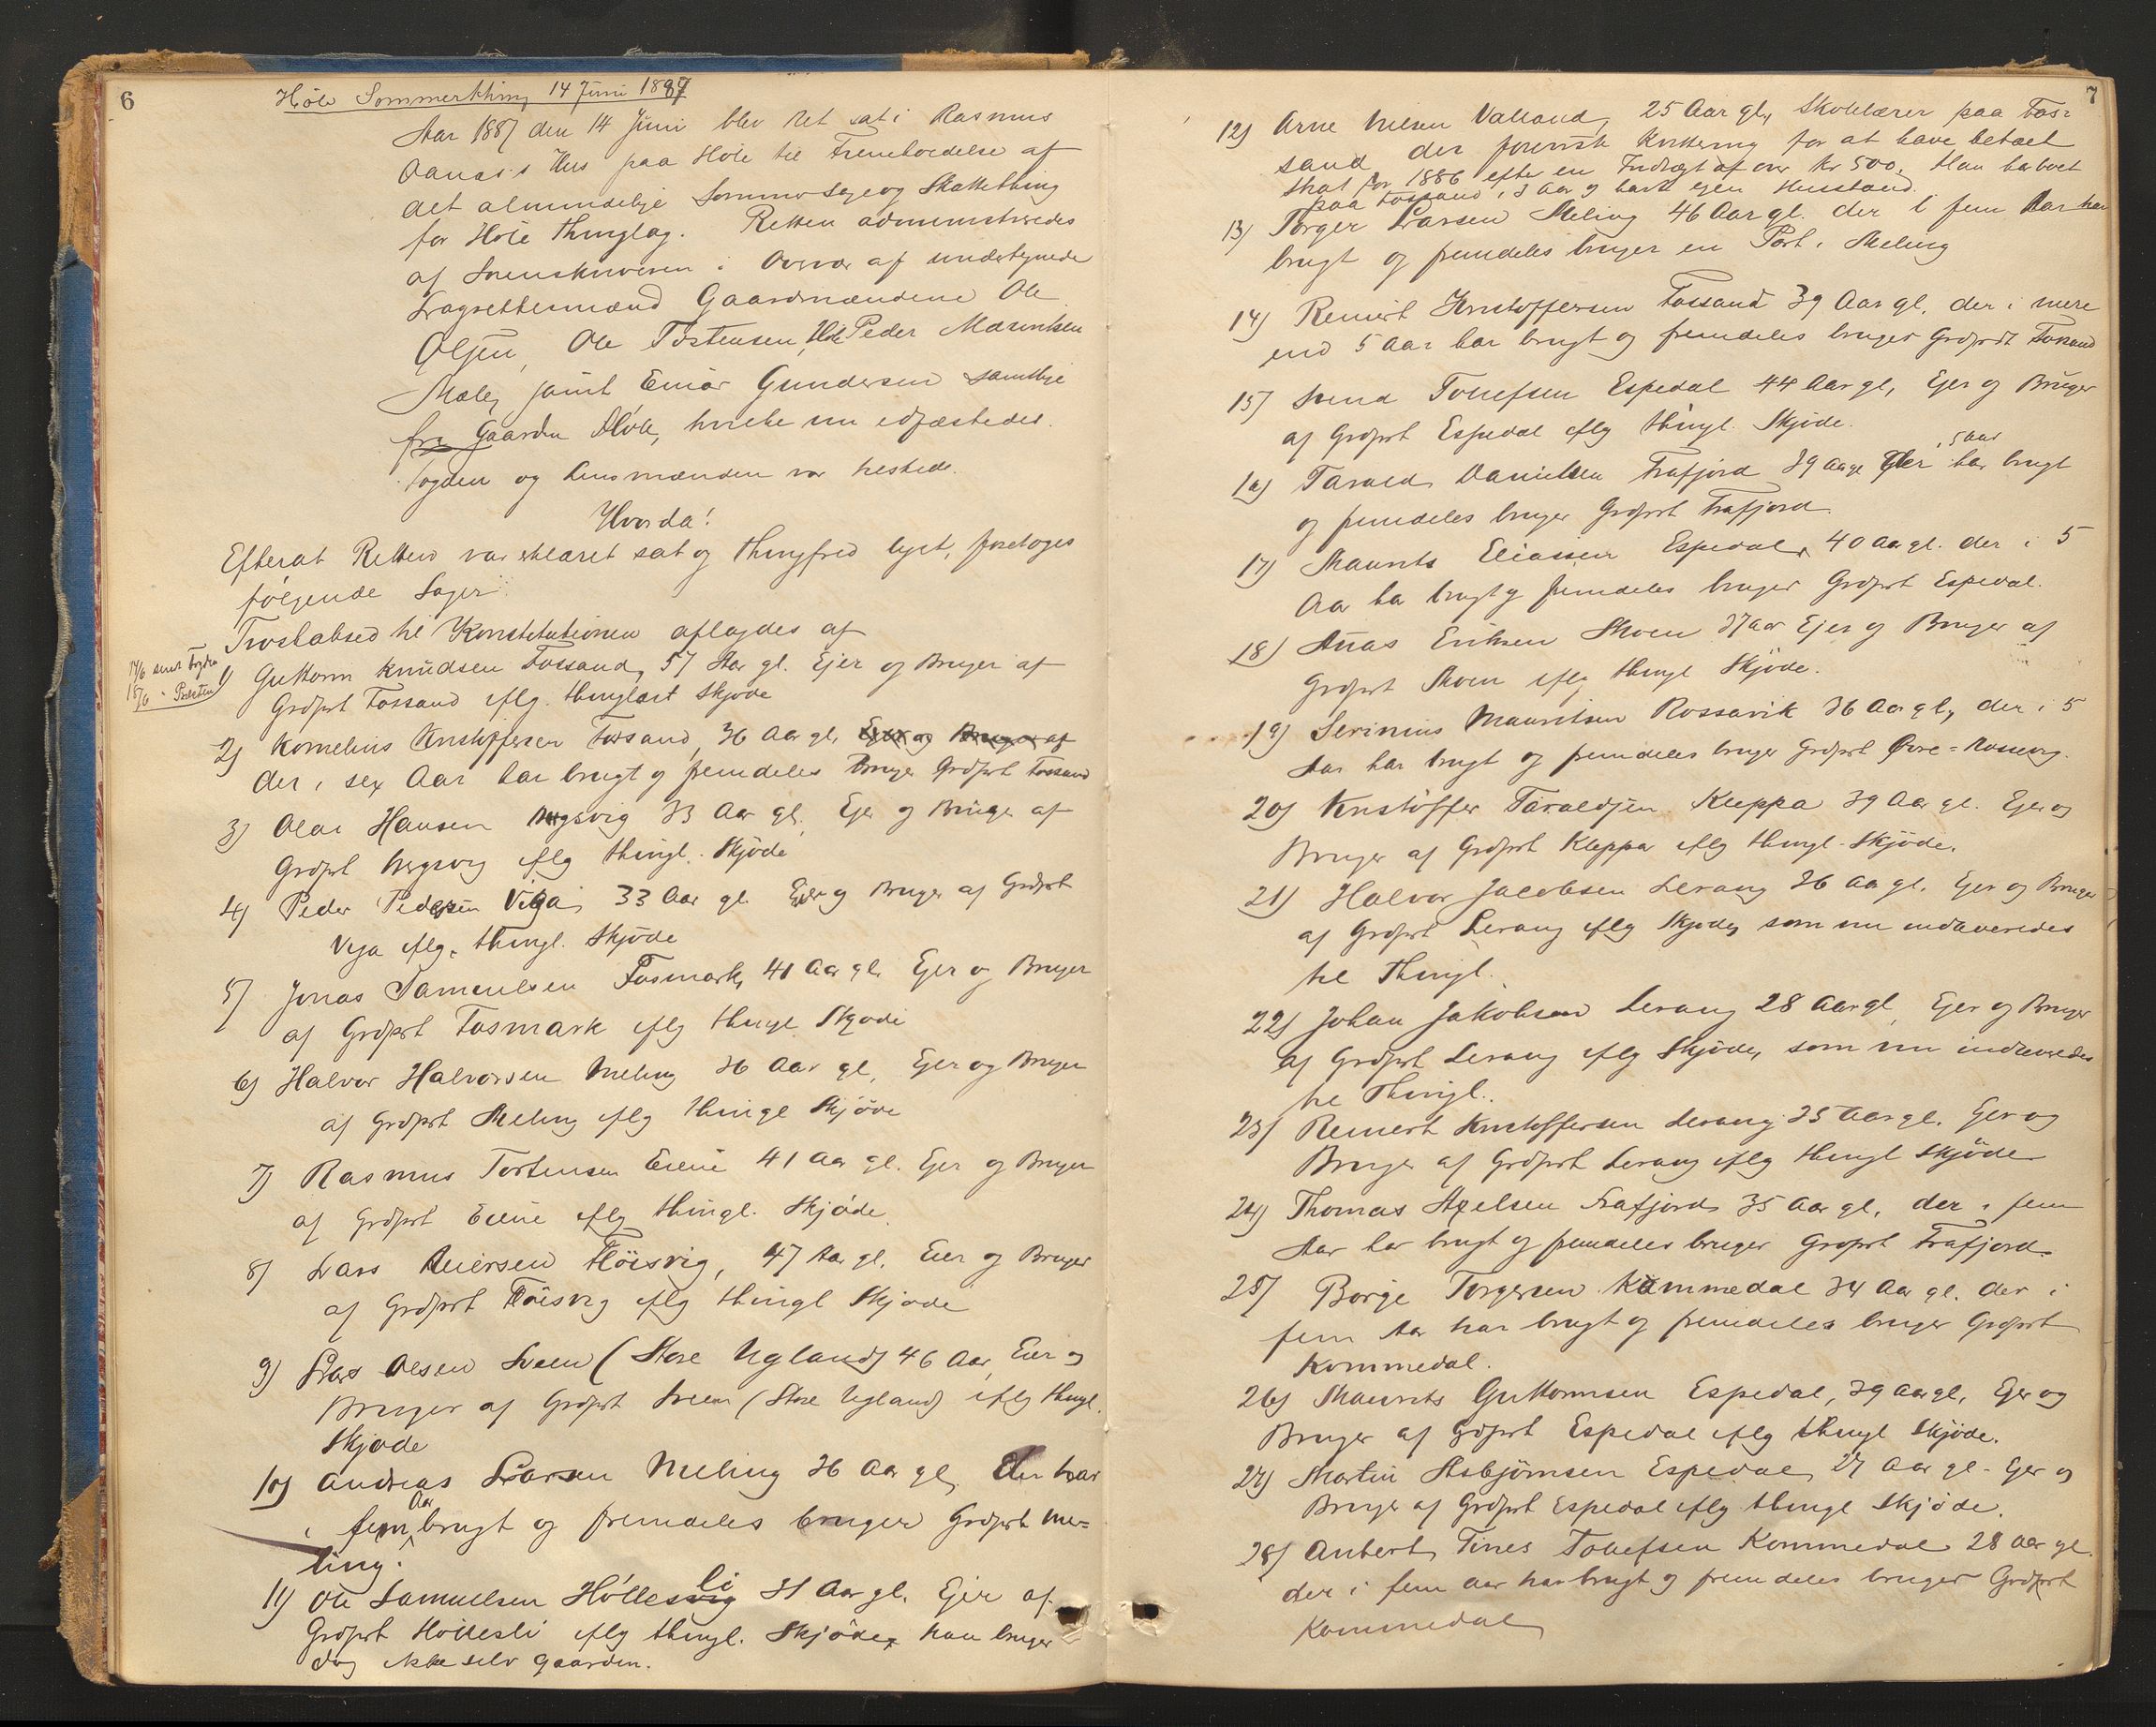 6
Höle Sommerthing 14 Juni 1887
Aar 1887 den 14 Juni blev Ret sat i Rasmus
Aanas's Hus paa Höle til Fremholdelse af
det almindelige Sommer Sage og Skattething
for Höle Thinglag. Retten administreredes
af Sorenskriveren i Overvær af undertegnede
Lagrettemænd Gaardmændene Ole
Olsen, Ole Tostensen, Höle Peder
Mæle, samt Einar Gundersen samtlige
fra Gaarden Höle, hvilke nu edfæstedes.
Fogden og Lensmanden var tilstede.
Hvorda!
Efterat Retten var erklæret sat og Thingfred lyst, foretoges
følgende Sager:
Troskabsed til Konstitutionen aflagdes af
14/6 sendt Fogden
15/6
1) Guttorm Knudsen Fossand, 57 Aar gl. Ejer og Bruger af
Grdprt Fossand iflg. thinglæst Skjøde
2) Kornelius Kristoffersen Fossand, 36 Aar gl, Ejer og Bruger af
der i sex Aar har brugt og fremdeles bruger Grdprt Fossand
3) Olai Hansen 33 Aar gl. Ejer og Bruger af
Grdprt iflg thingl. Skjøde
4) Peder Pedersen Viga 33 Aar gl. Ejer og Bruger af Grdprt
Vega iflg. thingl. Skjøde
5) Jonas Samuelsen Fosmark, 41 Aar gl. Ejer og Bruger
af Grdprt Fosmark iflg thingl Skjøde
6) Halvor Halvorsen Meling 36 Aar gl, Ejer og Bruger
af Grdprt Meling iflg thingl Skjöde
7) Rasmus Tostensen Eiene 41 Aar gl. Ejer og Bruger
af Grdprt Eiene iflg thingl. Skjøde
8) Lars Reiersen Flöisvig, 47 Aar gl. Eier og Bruger
af Grdprt Flöisvig iflg thingl Skjøde
9) Lars Olsen Sveen (Store Ugland) 46 Aar, Eier og
Bruger af Grdprt Sveen (Store Ugland) iflg thingl.
Skjøde
10) Andreas Larsen Meling 36 Aar gl, der har
i fem Aar brugt og fremdeles bruger Grdprt Me=
ling.
11) Ole Samuelsen Höllesli 31 Aar gl. Ejer af
Grdprt Höllesli iflg thingl. Skjøde, han bruger
dog ikke selv Gaarden.
7
12) Arne Nilsen Valland, 25 Aar gl, Skolelærer paa Fos=
sand der foreviste Kvittering for at have betalt
Skat for 1886 efter en Indtægt af over Kr 500. Han har boet
paa Fossand i 3 Aar og havt egen Husstand.
13) Torger Larsen Meling 46 Aar gl. der i fem Aar har
brugt og fremdeles bruger en Part i Meling
14) Reinert Kristoffersen Fossand 39 Aar gl. der i mere
end 5 Aar har brugt og fremdeles bruger Grdprt Fossand
15) Svend Tollefsen Espedal 44 Aar gl, Ejer og Bruger
af Grdprt Espedal iflg thingl. Skjøde.
16) Tarald Danielsen Frafjord 39 Aar gl der i 5 Aar har brugt
og fremdeles bruger Grdprt Frafjord.
17) Maurits Eliassen Espedal, 40 Aar gl. der i 5
Aar har brugt og fremdeles bruger Grdprt Espedal.
18) Eriksen Moen 37 Aar Ejer og Bruger af
Grdprt Moen iflg thingl Skjøde.
19) Serinius Mauritsen Rossavik 36 Aar gl, der i 5
Aar har brugt og fremdeles bruger Grdprt Øvre=Rossevig.
20) Kristoffer Taraldsen Kleppa 39 Aar gl. Ejer og
Bruger af Grdprt Kleppa iflg thingl. Skjöde.
21) Halvor Jacobsen Lerang 36 Aar gl. Ejer og Bruger
af Grdprt Lerang iflg Skjøde, som nu indleveredes
til Thingl.
22) Johan Jakobsen Lerang 28 Aar gl, Ejer og Bruger
af Grdprt Lerang iflg Skjöde, som nu indleveredes
til Thingl.
23) Reinert Kristoffersen Lerang 35 Aar gl. Ejer og
Bruger af Grdprt Lerang iflg thingl Skjöde
24) Thomas Axelsen Frafjord 35 Aar gl, der i fem
Aar har brugt og fremdeles bruger Grdprt Frafjord.
25) Børge Torgersen Kommedal 34 Aar gl. der i
fem Aar har brugt og fremdeles bruger Grdprt
Kommedal.
26) Maurits Guttormsen Espedal, 39 Aar gl, Ejer og
Bruger af Grdprt Espedal iflg thingl Skjöde.
27) Martin Asbjörnsen Espedal, 27 Aar gl. Ejer og
Bruger af Grdprt Espedal iflg thingl Skjøde.
28) Anbert Tines Tollefsen Kommedal 28 Aar gl.
der i fem Aar har brugt og fremdeles bruger Grdprt
Kommedal